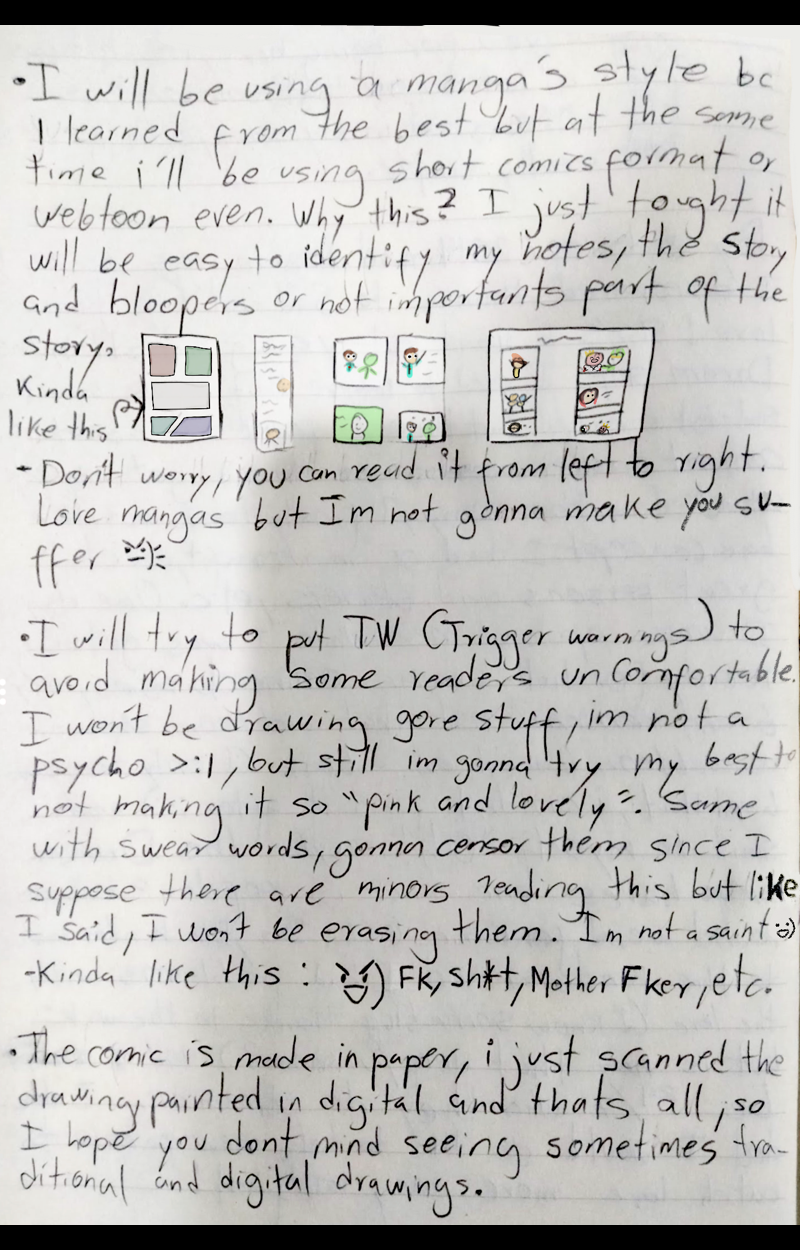 •I will be using a manga's style bc
I learned from the best but at the same
time i'll be using short comics format or
webtoon even. Why this? I just tought it
will be easy to identify my notes, the story
and bloopers or not importants part of the
story.
Kinda
like this
- Don't worry, you can read it from left to right.
Love mangas but Im not gonna make you su-
ffer
•I will try to put TW (Trigger warnings) to
avoid making some readers uncomfortable.
I won't be drawing gore stuff, im not a
psycho >:l, but still im gonna try my best to
not making it so "pink and lovely". Same
with swear words, gonna censor them since I
suppose there are minors reading this but like
I said, I won't be erasing them. Im not a saint
-Kinda like this: Fk, sh*t, Mother Fker, etc.
•The comic is made in paper, i just scanned the
drawing, painted in digital and thats all, so
I hope you dont mind seeing sometimes tra-
ditional and digital drawings.